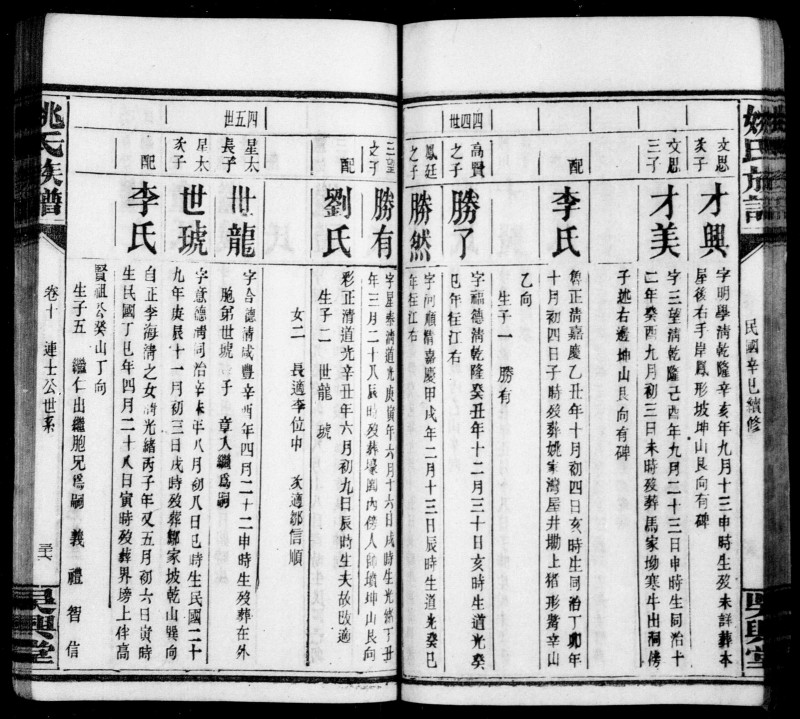 姚氏族譜
民國辛巳續修
吳興堂
文思
亥子
才興
字明學清乾隆辛亥年九月十三申時生歿未詳葬本
屋後右手岸鳳形坡坤山艮向有碑
文思
三子
才美
字三望清乾隆己酉年九月二十三日申時生同治十
二年癸酉九月初三日未時歿葬馬家坳寒牛出洞傍
子𠫵右邊坤山艮向有碑
配
李氏
魯正清嘉慶乙丑年十月初四日亥時生同治丁卯年
十月初四日子時歿葬姚家灣屋井墈上猪形嘴辛山
乙向
生子一 勝有
四四世
高賢
之子
勝了
字福德清乾隆癸丑年十二月三十日亥時生道光癸
巳年往江右
鳳廷
之子
勝然
字河順清嘉慶甲戌年二月十三日辰時生道光癸巳
年往江右
三望
之子
勝有
字星奉清道光庚寅年六月十六日戌時生光緒丁丑
年三月二十八辰時歿葬壕園內傍人師墳坤山艮向
配
劉氏
彩正清道光辛丑年六月初九日辰時生夫故改適
生子二 世龍 琥
女二 長適李位中 亥適鄒信順
四五世
星太
長子
世龍
字合德清咸豐辛酉年四月二十二申時生歿葬在外
胞弟世琥 子 章人繼爲嗣
星太
亥子
世琥
字意德清同治辛未年八月初八日巳時生民國二十
九年庚辰十一月初三日戌時歿葬鄒家坡乾山巽向
配
李氏
自正李海清之女清光緒丙子年又五月初六日寅時
生民國丁巳年四月二十八日寅時歿葬界塝上伴高
賢祖公癸山丁向
生子五 繼仁出繼胞兄爲嗣 義 禮 智 信
姚氏族譜
卷十 連士公世系
吳興堂